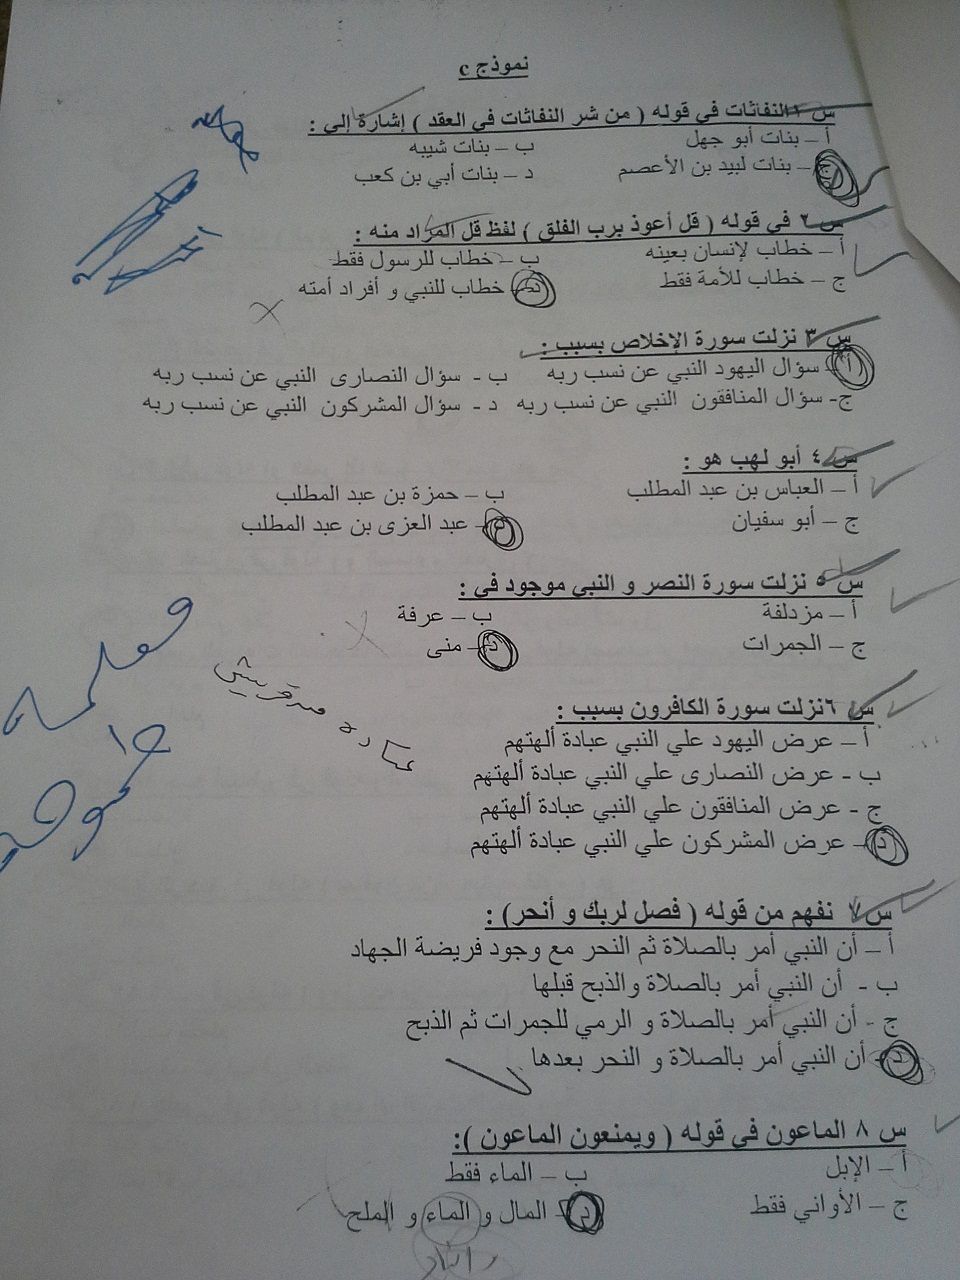 نموذج c
س ١ النفاثات في قوله ( من شر النفاثات في العقد ) إشارة إلى :
أ – بنات أبو جهل ب – بنات شيبه
ج – بنات لبيد بن الأعصم د – بنات أبي بن كعب
س ٢ في قوله ( قل أعوذ برب الفلق ) لفظ قل المراد منه :
أ – خطاب لإنسان بعينه ب – خطاب للرسول فقط
ج – خطاب للأمة فقط د – خطاب للنبي و أفراد أمته
س ٣ نزلت سورة الإخلاص بسبب :
أ – سؤال اليهود النبي عن نسب ربه ب - سؤال النصارى النبي عن نسب ربه
ج- سؤال المنافقون النبي عن نسب ربه د - سؤال المشركون النبي عن نسب ربه
س ٤ أبو لهب هو :
أ – العباس بن عبد المطلب ب – حمزة بن عبد المطلب
ج – أبو سفيان د – عبد العزى بن عبد المطلب
س ٥ نزلت سورة النصر و النبي موجود في :
أ – مزدلفة ب – عرفة
ج – الجمرات د – منى
س ٦نزلت سورة الكافرون بسبب :
أ – عرض اليهود علي النبي عبادة ألهتهم
ب - عرض النصارى علي النبي عبادة ألهتهم
ج - عرض المنافقون علي النبي عبادة ألهتهم
د – عرض المشركون علي النبي عبادة ألهتهم
س ٧ نفهم من قوله ( فصل لربك و أنحر) :
أ – أن النبي أمر بالصلاة ثم النحر مع وجود فريضة الجهاد
ب - أن النبي أمر بالصلاة والذبح قبلها
ج - أن النبي أمر بالصلاة و الرمي للجمرات ثم الذبح
د – أن النبي أمر بالصلاة و النحر بعدها
س ٨ الماعون في قوله ( ويمنعون الماعون ):
أ – الإبل ب – الماء فقط
ج – الأواني فقط د – المال و الماء و الملح